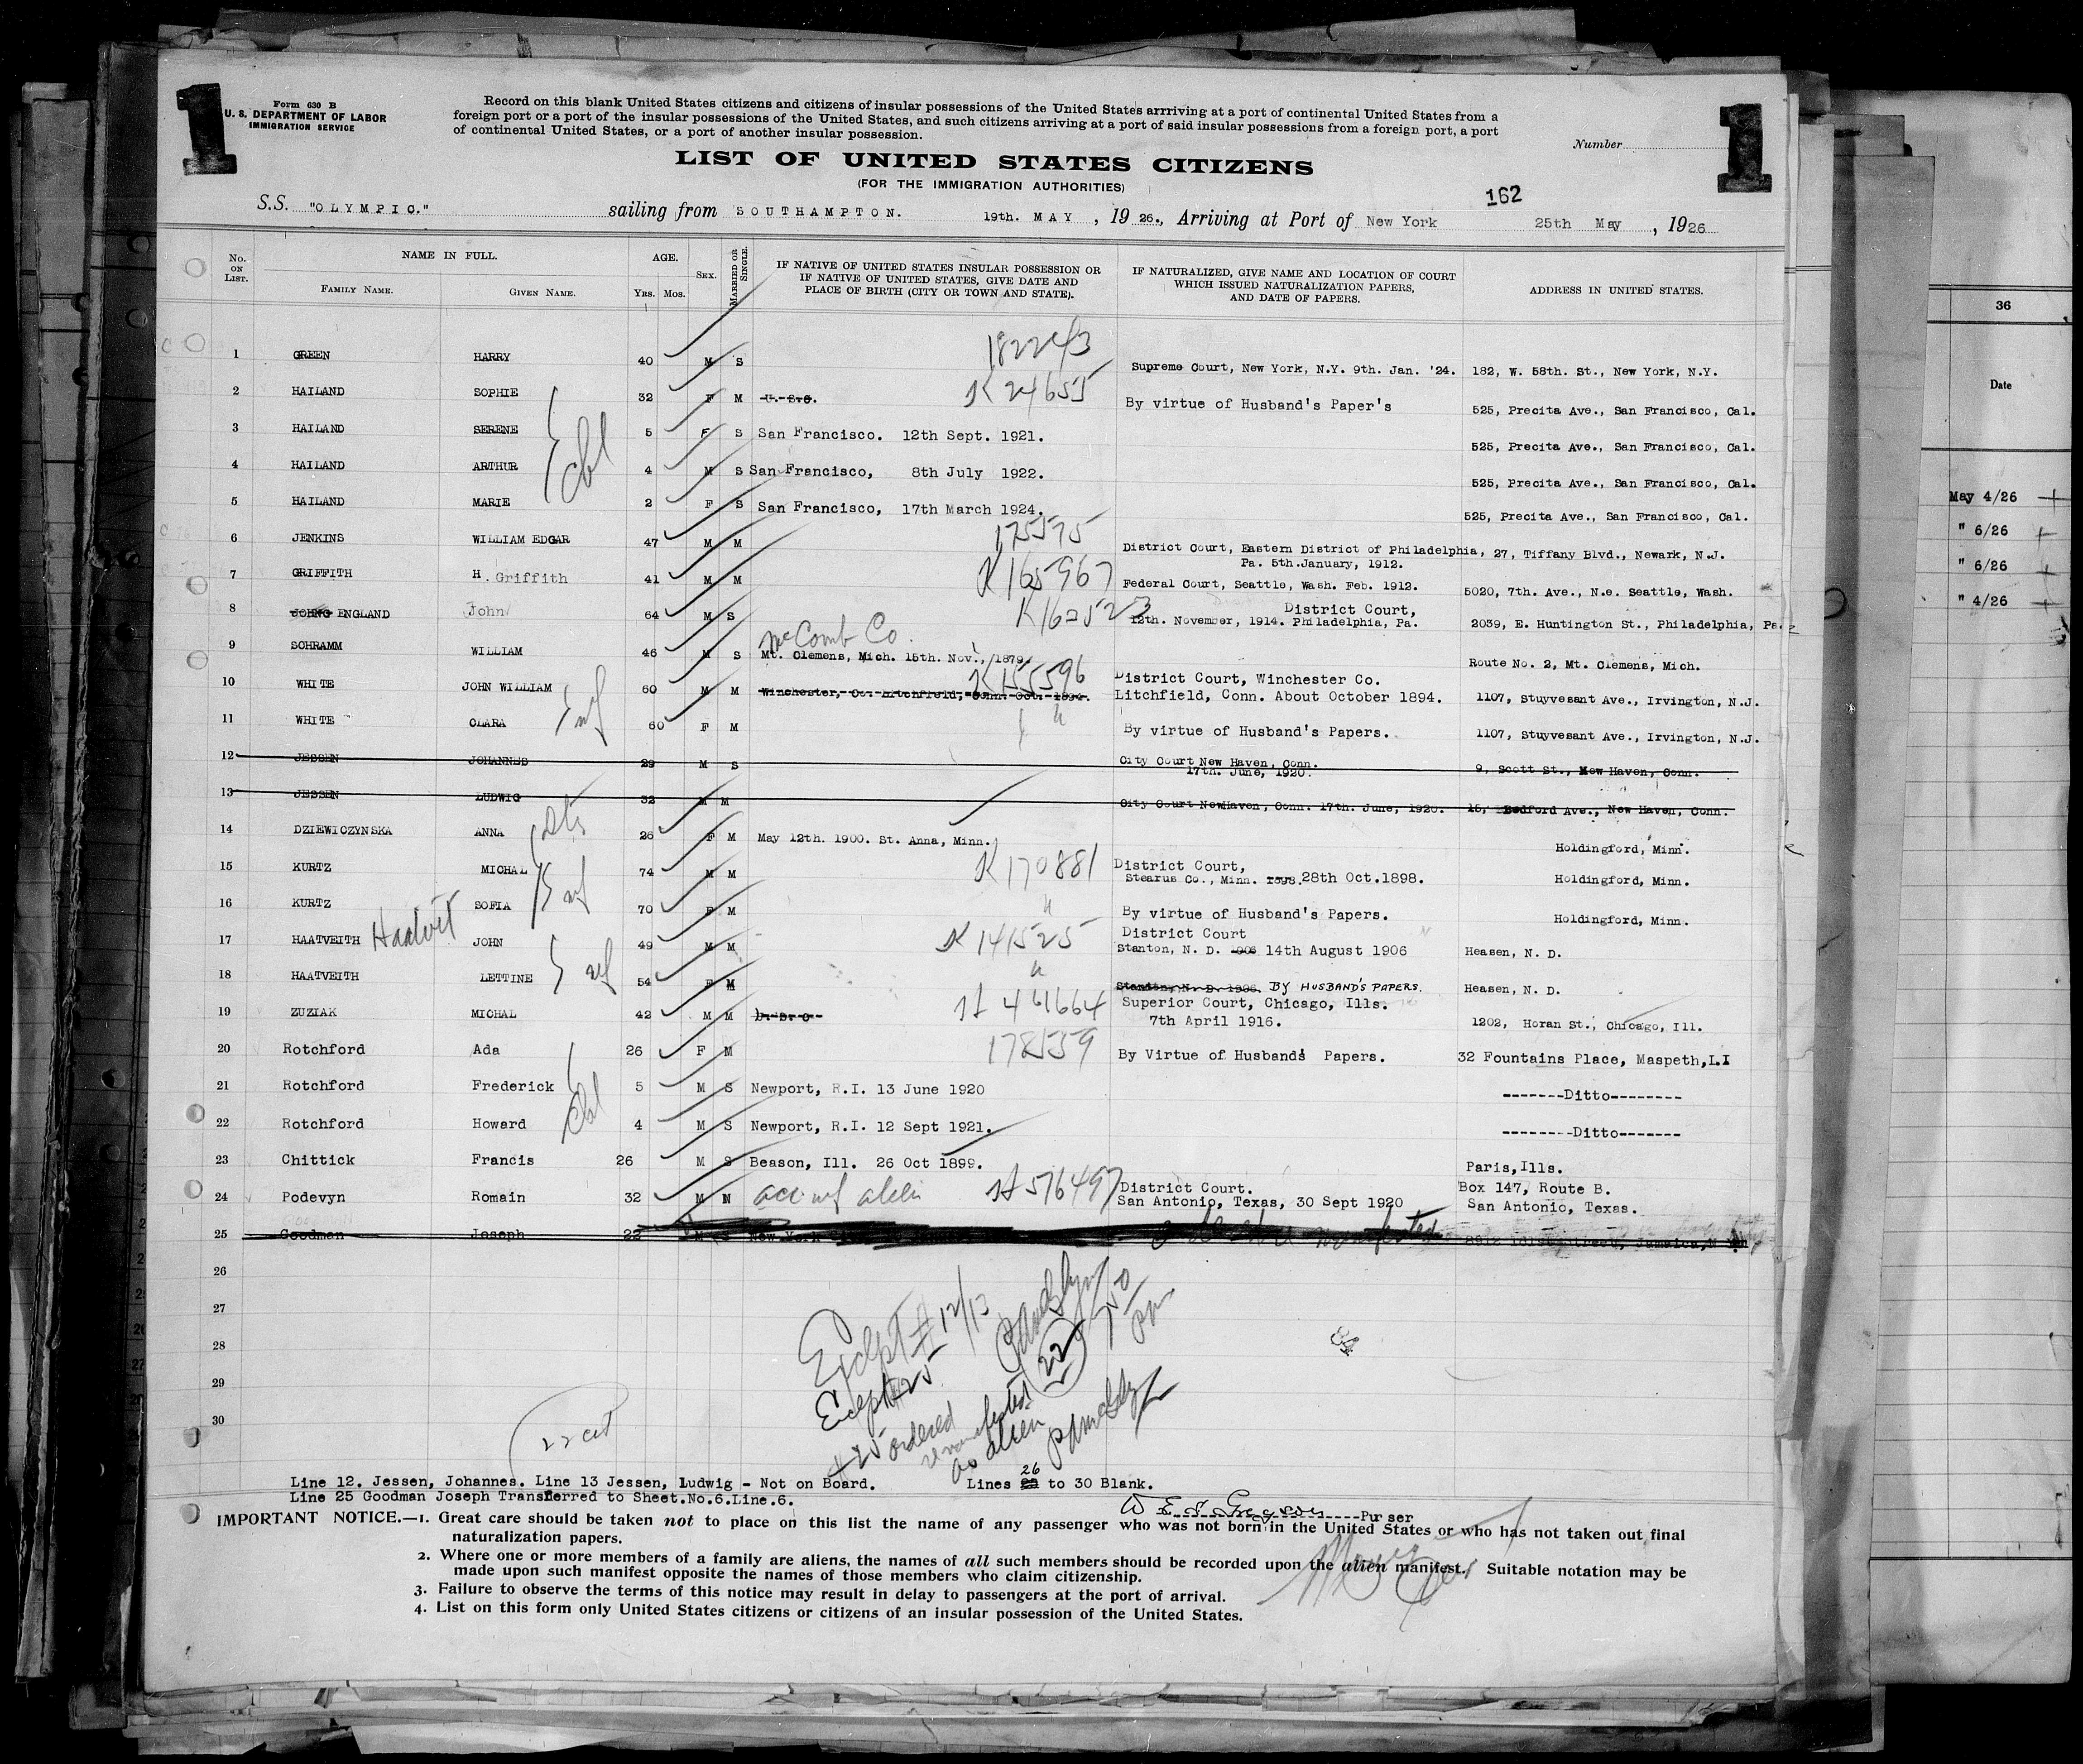 1
1
Form 630 B
U. S. DEPARTMENT OF LABOR
IMMIGRATION SERVICE
Record on this blank United States citizens and citizens of insular possessions of the United States arrriving at a port of continental United States from a
foreign port or a port of the insular possessions of the United States, and such citizens arriving at a port of said insular possessions from a foreign port, a port
of continental United States, or a port of another insular possession.
Number
LIST OF UNITED STATES CITIZENS
(FOR THE IMMIGRATION AUTHORITIES)
162
S.S. "OLYMPIC." sailing from SOUTHAMPTON. 19th. MAY, 1926., Arriving at Port of New York 25th May, 1926
No. ON LIST. NAME IN FULL. FAMILY NAME. GIVEN NAME. AGE. Yrs. Mos. SEX. MARRIED OR SINGLE.
IF NATIVE OF UNITED STATES INSULAR POSSESSION OR
IF NATIVE OF UNITED STATES, GIVE DATE AND
PLACE OF BIRTH (CITY OR TOWN AND STATE).
IF NATURALIZED, GIVE NAME AND LOCATION OF COURT
WHICH ISSUED NATURALIZATION PAPERS,
AND DATE OF PAPERS.
ADDRESS IN UNITED STATES.
36
Date
May 4/26
" 6/26
" 6/26
" 4/26
1 GREEN HARRY 40 M S 182243 Supreme Court, New York, N.Y. 9th. Jan. '24. 182, W. 58th. St., New York, N.Y.
2 HAILAND SOPHIE 32 F M U.S.C. K 24655 By virtue of Husband's Paper's 525, Precita Ave., San Francisco, Cal.
3 HAILAND SERENE 5 F S San Francisco. 12th Sept. 1921. 525, Precita Ave., San Francisco, Cal.
cbl
4 HAILAND ARTHUR 4 M S San Francisco, 8th July 1922. 525, Precita Ave., San Francisco, Cal.
5 HAILAND MARIE 2 F S San Francisco, 17th March 1924. 525, Precita Ave., San Francisco, Cal.
6 JENKINS WILLIAM EDGAR 47 M M 175575 District Court, Eastern District of Philadelphia, Pa. 5th.January, 1912. 27, Tiffany Blvd., Newark, N.J.
7 GRIFFITH H. Griffith 41 M M K 165967 Federal Court, Seattle, Wash. Feb. 1912. 5020, 7th. Ave., N.e. Seattle, Wash.
8 JOHNG ENGLAND John 64 M S K 162523 District Court,
12th. November, 1914. Philadelphia, Pa. 2039, E. Huntington St., Philadelphia, Pa.
McComb Co.
9 SCHRAMM WILLIAM 46 M S Mt. Clemens, Mich. 15th. Nov., 1879. Route No. 2, Mt. Clemens, Mich.
10 WHITE JOHN WILLIAM 60 M M Winchester, Co. Litchfield, Conn. Oct. 1894. K 155596 District Court, Winchester Co.
Litchfield, Conn. About October 1894. 1107, Stuyvesant Ave., Irvington, N.J.
wf
11 WHITE CLARA 60 F M " By virtue of Husband's Papers. 1107, Stuyvesant Ave., Irvington, N.J.
12 JESSEN JOHANNES 29 M S City Court New Haven, Conn.
17th. June, 1920. 9, Scott St., New Haven, Conn.
13 JESSEN LUDWIG 32 M M City Court NewHaven, Conn. 17th. June, 1920. 15, Bedford Ave., New Haven, Conn.
14 DZIEWICZYNSKA ANNA 26 F M May 12th. 1900. St. Anna, Minn. Holdingford, Minn.
15 KURTZ MICHAL 74 M M K 170881 District Court,
Stearus Co., Minn. 1898. 28th Oct.1898. Holdingford, Minn.
wf
16 KURTZ SOFIA 70 F M " By virtue of Husband's Papers. Holdingford, Minn.
17 HAATVEITH Haatvet JOHN 49 M M K 141525 District Court
Stanton, N. D. 1906 14th August 1906 Heasen, N. D.
wf
18 HAATVEITH LETTINE 54 F M " Stanton, N. D. 1906. BY HUSBAND'S PAPERS. Heasen, N. D.
19 ZUZIAK MICHAL 42 M M U.S.C. 461664 Superior Court, Chicago, Ills.
7th April 1916. 1202, Horan St., Chicago, Ill.
20 Rotchford Ada 26 F M 178559 By Virtue of Husband's Papers. 32 Fountains Place, Maspeth,L.I
21 Rotchford Frederick 5 M S Newport, R.I. 13 June 1920 -------Ditto--------
cbl
22 Rotchford Howard 4 M S Newport, R.I. 12 Sept 1921. --------Ditto-------
23 Chittick Francis 26 M S Beason, Ill. 26 Oct 1899. Paris,Ills.
24 Podevyn Romain 32 M M acc wf alien 576497 District Court.
San Antonio, Texas, 30 Sept 1920 Box 147, Route B.
San Antonio, Texas.
25 Goodman Joseph 22 M S New York manifested Jamaica,
26
27
28
29
30
Except # 12/13
Except #25
#25 ordered
as alien
22
Line 12. Jessen, Johannes. Line 13 Jessen, Ludwig - Not on Board. Lines 26 to 30 Blank.
Line 25 Goodman Joseph Transferred to Sheet.No.6.Line.6.
Purser
IMPORTANT NOTICE.—1. Great care should be taken not to place on this list the name of any passenger who was not born in the United States or who has not taken out final
naturalization papers.
2. Where one or more members of a family are aliens, the names of all such members should be recorded upon the alien manifest. Suitable notation may be
made upon such manifest opposite the names of those members who claim citizenship.
3. Failure to observe the terms of this notice may result in delay to passengers at the port of arrival.
4. List on this form only United States citizens or citizens of an insular possession of the United States.